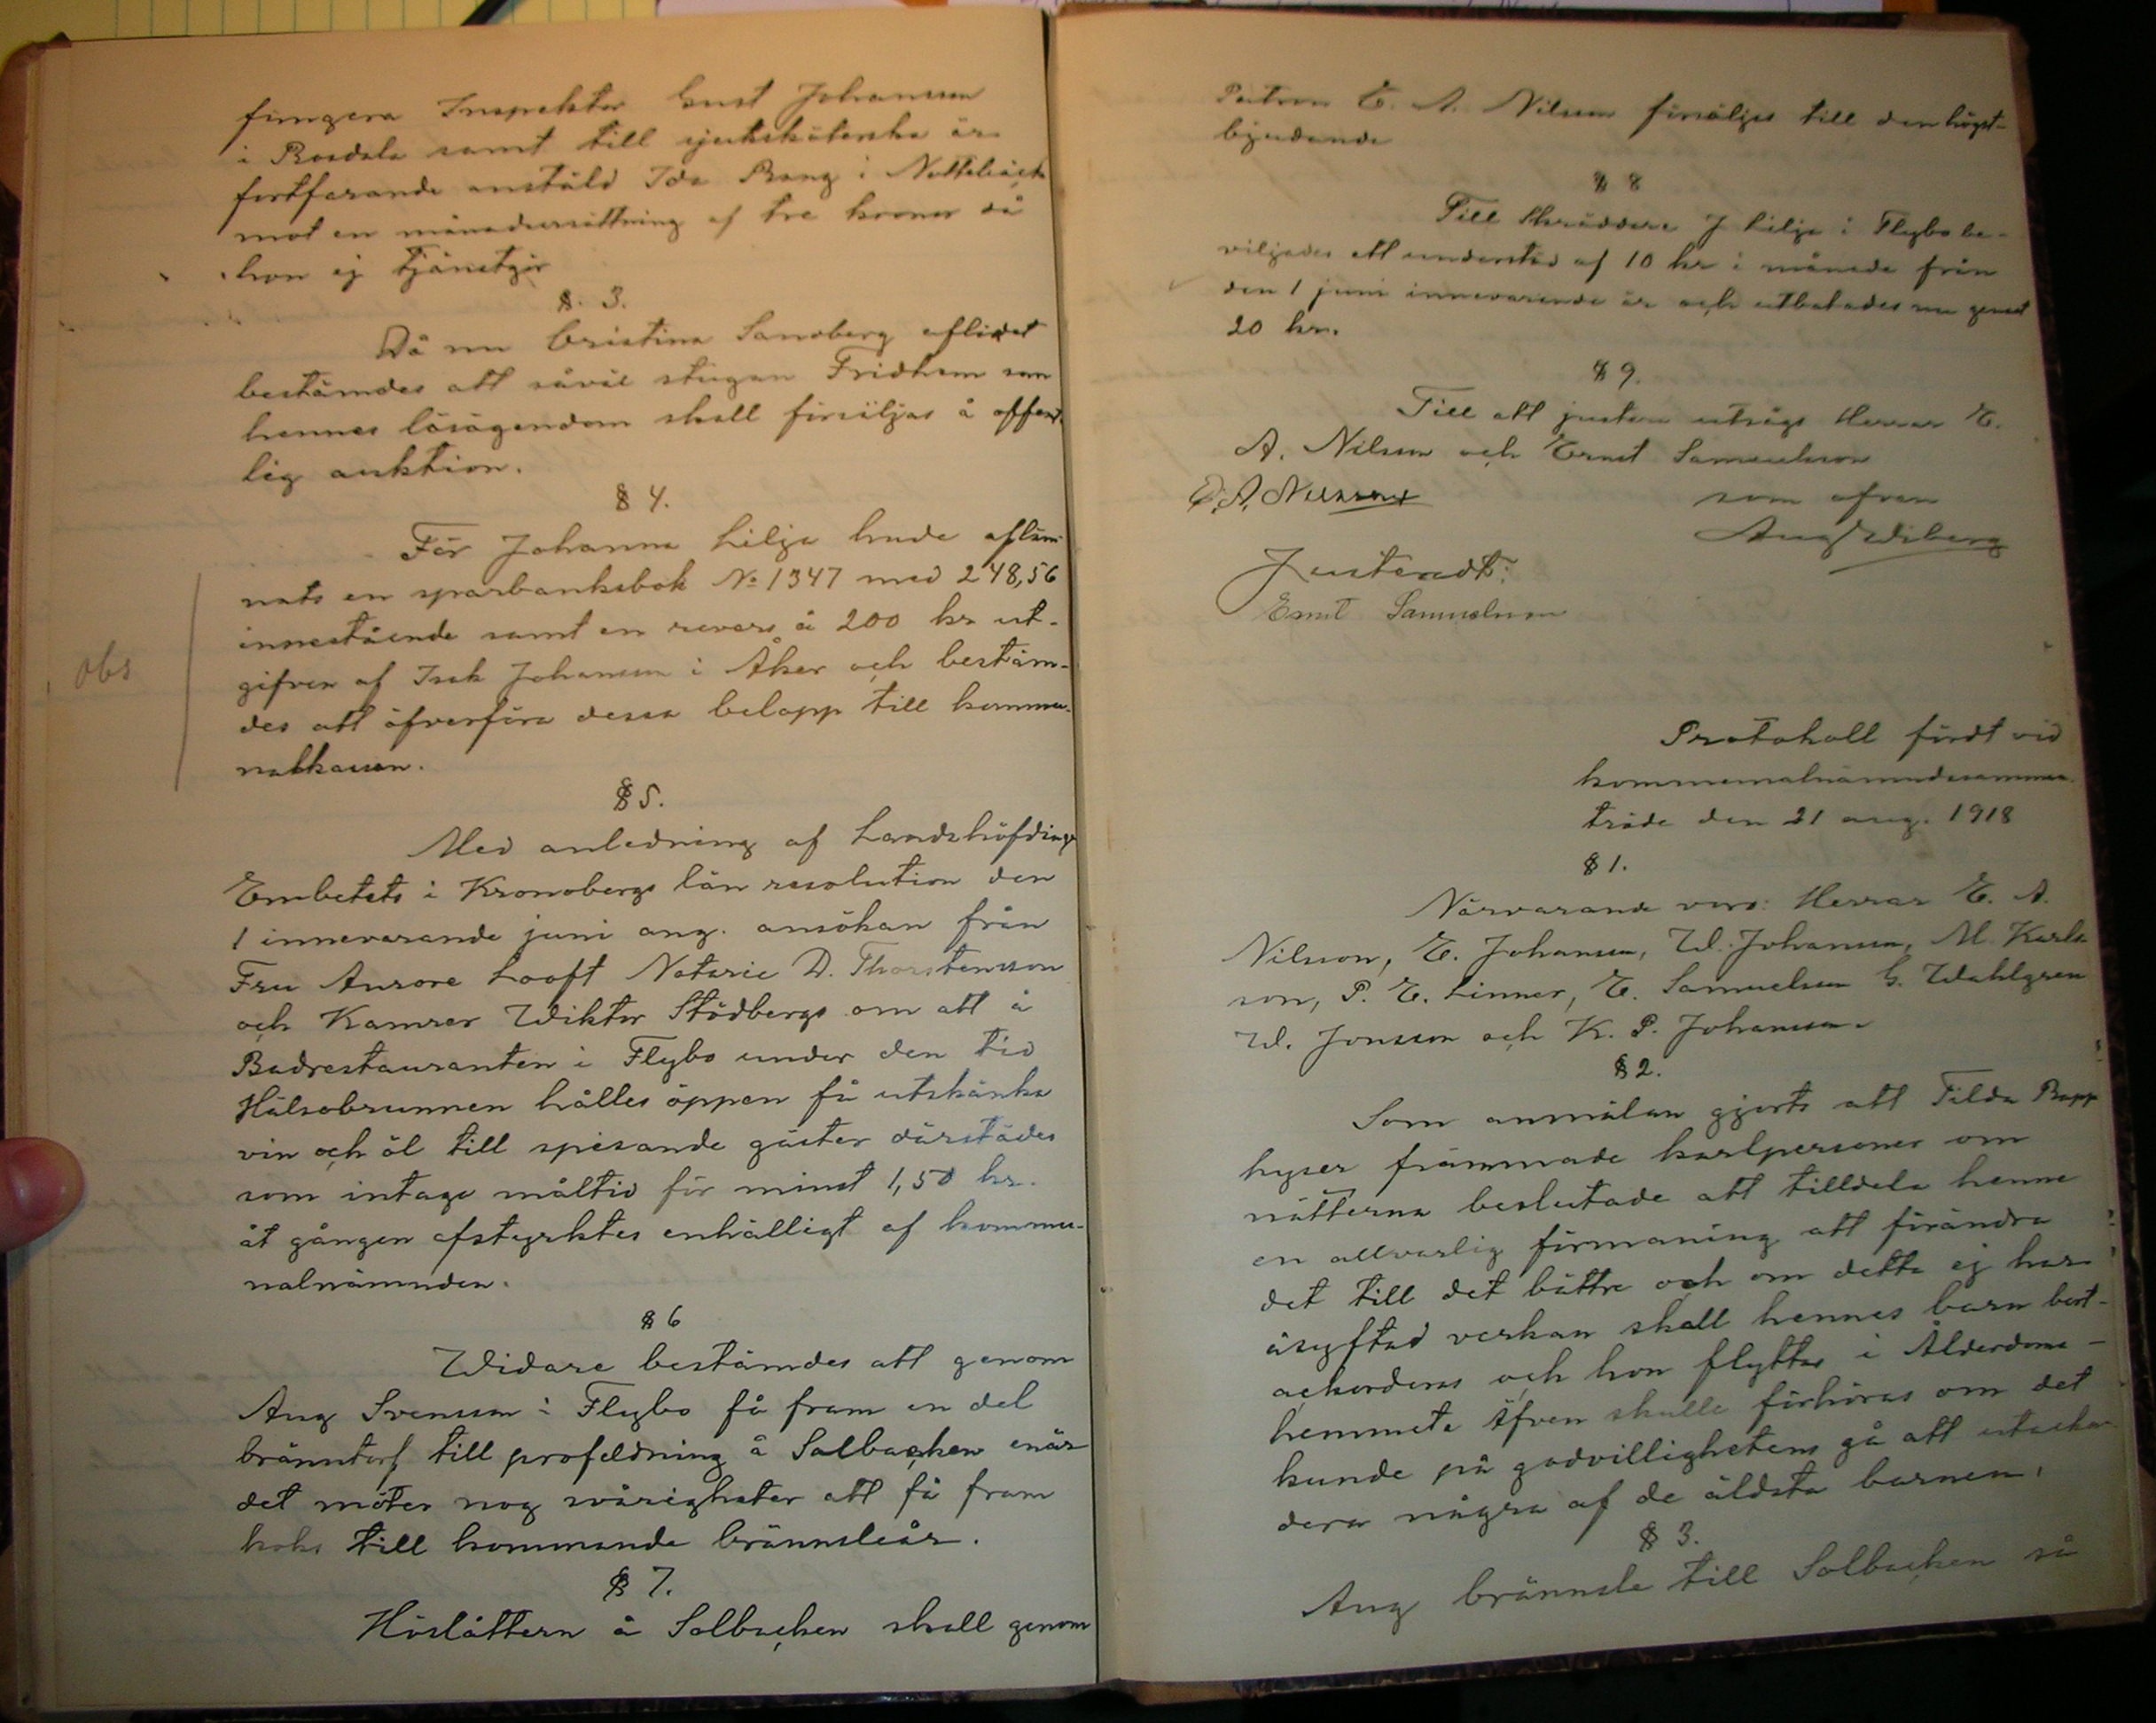 fungera Inspektor Gust Johansson
i Rosdala samt till sjuksköterska är
fortfarande anstäld Ida Bang i Nottebäck
mot en månadsersättning af tre kronor då
hon ej tjänstgör
§. 3.
Då nu Cristina Sandberg aflidet
bestämdes att såväl stugan Fridhem som
hennes lösögendom skall försäljas å offent
lig auktion.
§ 4.
För Johanna Lilja hade afläm
nats en sparbanksbok No 1347 med 248,56
innestående samt en revers å 200 kr ut-
gifven af Isak Johansson i Åker och bestäm-
des att öfverföra dessa belopp till kommu-
nalkassan.
obs
§ 5.
Med anledning af Landshöfdinge
Embetets i Kronobergs län resolution den
1 innevarande juni ang. ansökan från
Fru Aurore Looft Notarie D. Thorstensson
och Kamrer Wiktor Stödbergs om att å
Badrestauranten i Flybo under den tid
Hälsobrunnen hålles öppen få utskänka
vin och öl till spisande gäster därstädes
som intaga måltid för minst 1,50 kr.
åt gången afstyrktes enhälligt af kommu-
nalnämnden.
§ 6
Widare bestämdes att genom
Aug Svensson i Flybo få fram en del
bränntorf till profeldning å Solbacken enär
det möter nog svårigheter att få fram
koks till kommande bränsleår.
§ 7.
Höslåttern å Solbacken skall genom
Patron E. A. Nilsson försäljes till den högst-
bjudande
§ 8
Till Skräddare J Lilja i Flybo be-
viljades ett understöd af 10 kr i månade från
den 1 juni innevarande år och utbetades nu genast
20 kr.
§ 9.
Till att justera utsågs Herrar E.
A. Nilsson och Ernst Samuelsson
som ofvan
E. A. Nilsson
Aug Wiberg
Justeradt:
Ernst Samuelsson
Protokoll fördt vid
kommunalnämndssamman-
träde den 21 aug. 1918
§ 1.
Närvarande voro: Herrar E. A.
Nilsson, E. Johansson, W. Johansson, M. Karls
son, P. E. Linner, E. Samuelsson G. Wahlgren
W. Jonsson och K. P. Johansson.
§ 2.
Som anmälan gjorts att Tilda Rapp
hyser främmade karlpersoner om
nätterna beslutade att tilldela henne
en allvarlig förmaning att förändra
det till det bättre och om detta ej har
åsyftad verkan skall hennes barn bort-
ackorderas och hon flyttas i Ålderdoms-
hemmete äfven skulle förhöras om det
kunde på godvillighetens gå att utackor
dera några af de äldsta barnen.
§ 3.
Ang bränsle till Solbacken så